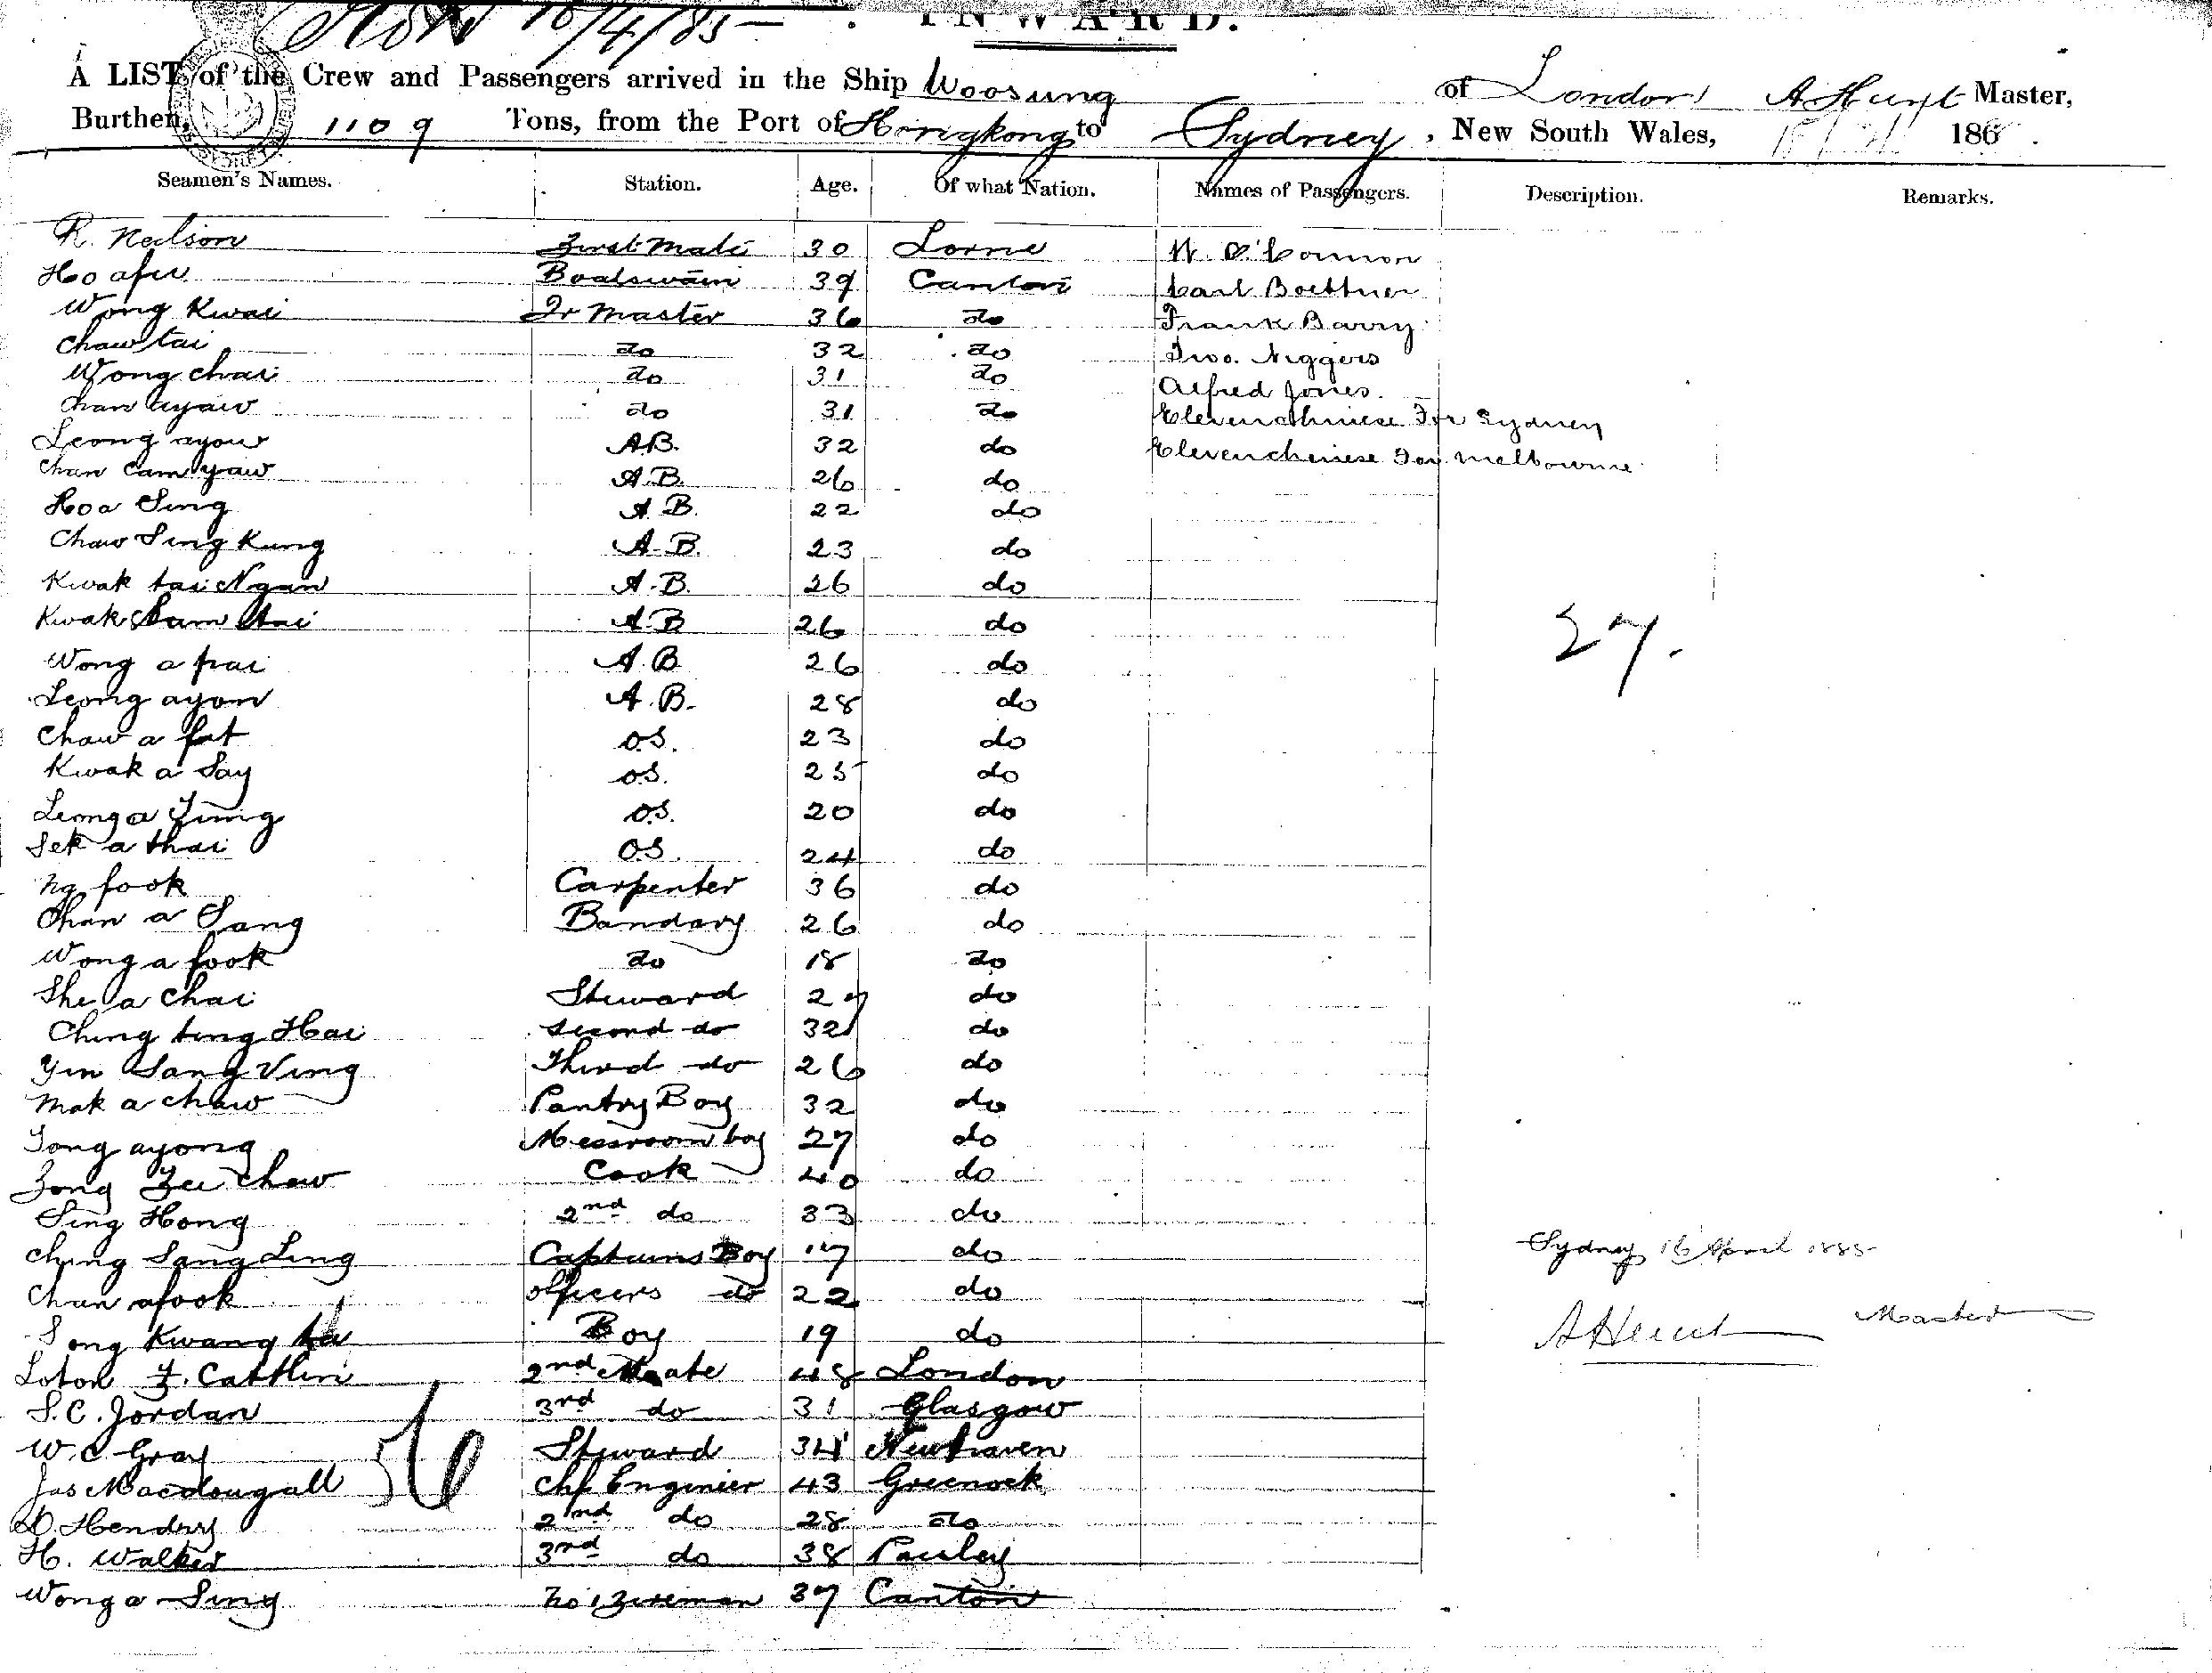 16/4/85 INWARD.
A LIST of the Crew and Passengers arrived in the Ship Woosung of London A Hunt Master,
Burthen, 1109 Tons, from the Port of Hongkong to Sydney, New South Wales, 186
Seamen's Names. Station. Age. Of what Nation. Names of Passengers. Description. Remarks.
R. Neilson First Mate 30 Lorne
Ho afu Boatswain 39 Canton Carl Boettner
Wong Kwai Qr Master 36 do Frank Barry
Chaw tai do 32 do Two Niggers
Wong chai do 31 do Alfred Jones.
Chan ayaw do 31 do Eleven chinese For Sydney
Leong ayow A.B. 32 do Eleven chinese For Melbourne
Chan Cam yaw A.B. 26 do
Hoa Sing A.B. 22 do
Chaw Sing Kung A.B. 23 do
Kwak tai Ngan A.B. 26 do
Kwak Sam tai A.B 26 do
27.
Wong a pai A.B 26 do
Leong ayon A.B. 28 do
Chaw a fat O.S. 23 do
Kwak a Say O.S. 25 do
Leong a Ying O.S. 20 do
Sek a thai O.S. 24 do
Ng fook Carpenter 36 do
Chan a Sang Bandary 26 do
Wong a fook do 18 do
She a Chai Steward 27 do
Ching ting Hai Second do 32 do
Yin Sang Ving Third do 26 do
Mak a chaw Pantry Boy 32 do
Tong ayong Messroom boy 27 do
Fong Fee Chaw Cook 40 do
Sing Hong 2nd do 33 do
Ching Sang Ling Captains Boy 17 do
Sydney 16 April 1885
Chan afook officers do 22 do
Song Kwang Boy 19 do
A Hunt Master
Loton F. Cattlin 2nd Mate 48 London
S. C. Jordan 3rd do 31 Glasgow
W. C. Gray Steward 34 Newhaven
Jas Macdougall Chf Enginier 43 Greenock
D. Hendry 2nd do 28 do
H. Walker 3rd do 38 Paisley
Wong a Sing No 1 Fireman 37 Canton